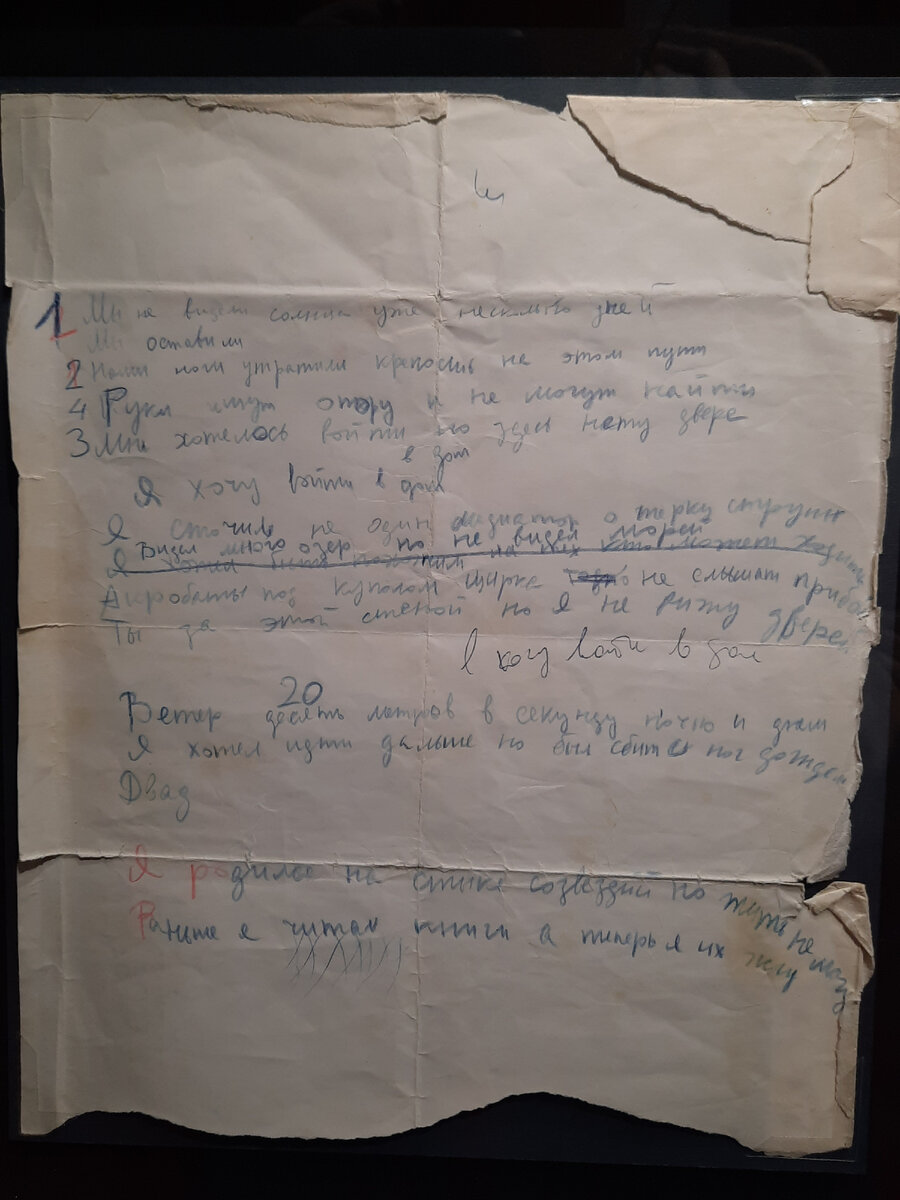 1 Мы не видели солнца уже несколько дней
Мы оставили
2 Наши ноги утратили крепость на этом пути
4 Руки ищут опору и не могут найти
3 Мне хотелось войти но здесь нету двере
в дом
Я хочу войти в дом
Я сточил не один медиатор о терку струн
Видел много озер но не видел морей
Я
Акробаты под куполом цирка не слышат прибой
Ты за этой стеной но я не вижу дверей
Я хочу войти в дом
20
Ветер десять метров в секунду ночью и днем
Я хотел идти дальше но был сбит с ног дождем
Двад
Я родился на стыке созвездий но жить не могу
Раньше я читал книги а теперь я их жгу